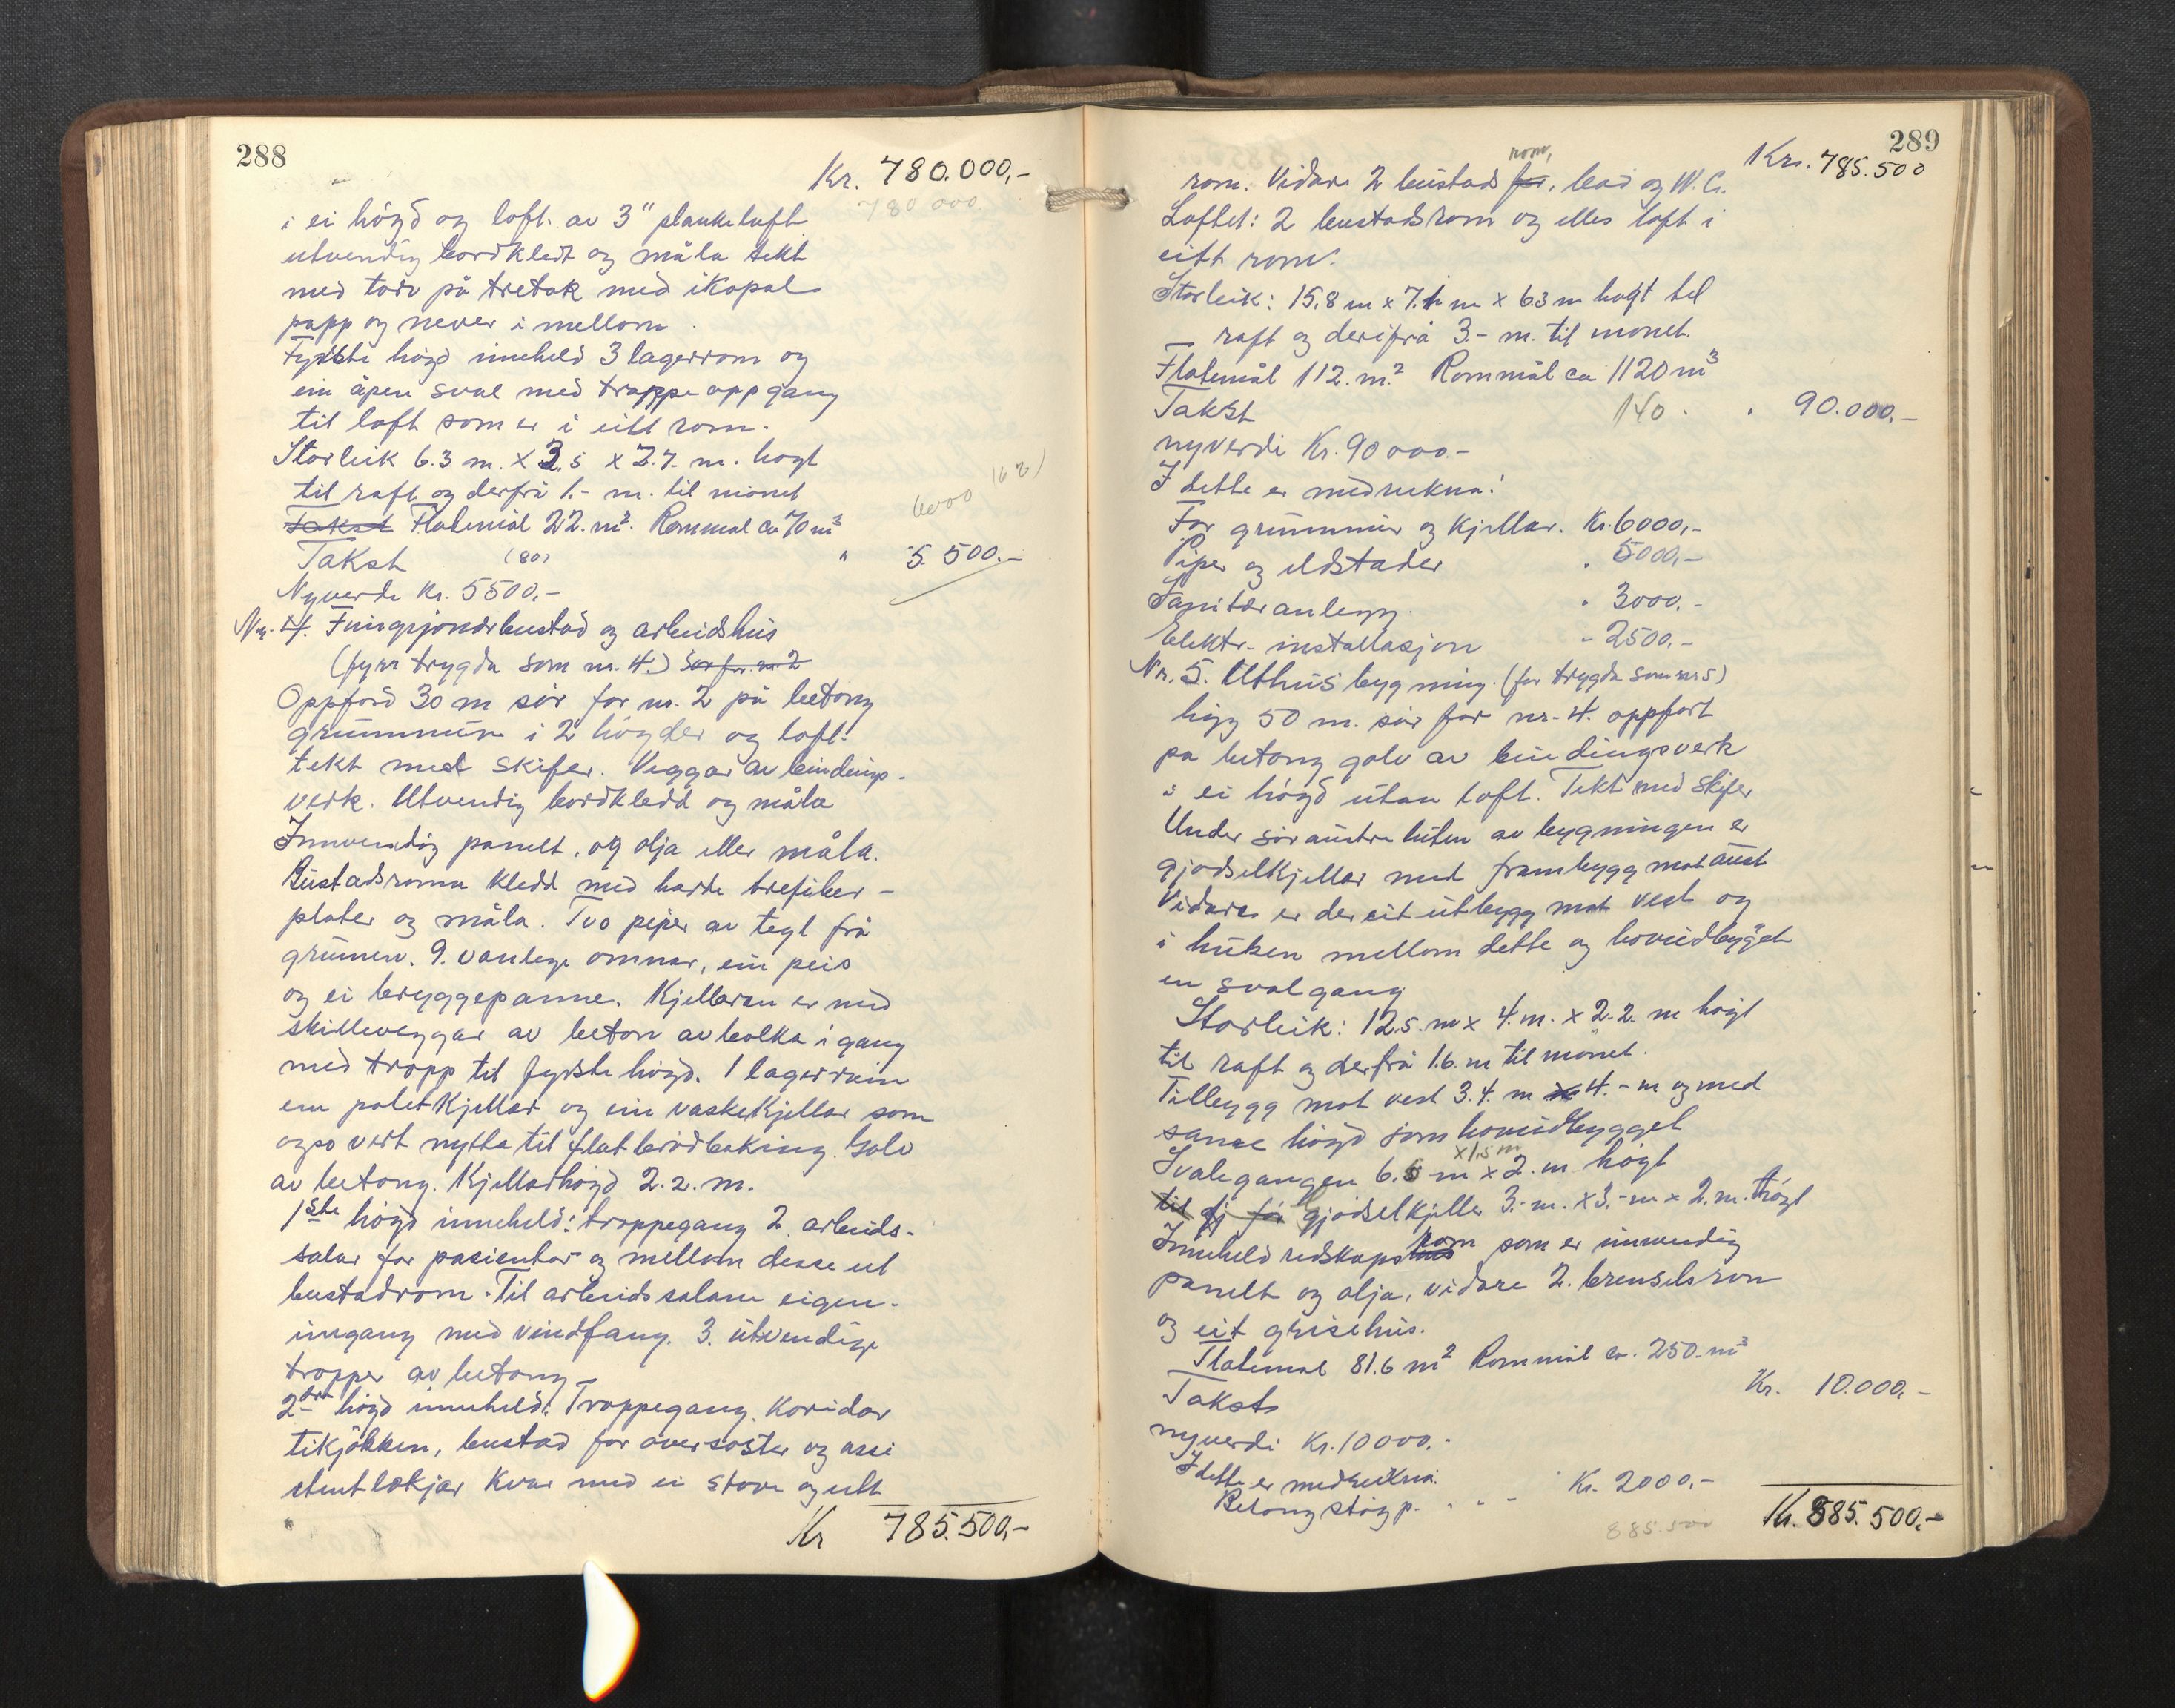 288
Kr. 780.000,-
780 000
i ei högd og loft. av 3" plankeluft
utvendig bordkledt og måla tekt
med torv på tretak med ikopal
papp og never i mellom.
Fyrste högd inneheld 3 lagerrom og
ein åpen sval med trappe oppgang
til loft som er i eitt rom.
Storleik 6.3 m. x 3.5 x 2.7. m. hogt
til raft og derfrå 1.- m. til mönet
Takst Flatemål 22. m². Rommål ca 70 m³
6000
Takst (80) " 5.500.-
Nyverde Kr. 5500,-
Nr. 4. Fungsjonærbustad og arbeidshus
(fyrr trygda som nr. 4.) Sør for nr. 2
Oppförd 30 m sör for nr. 2 på betong
grunnmur i 2 högder og loft.
tekt med skifer. Veggar av bindings-
verk. Utvendig bordkledd og måla
Innvendig panelt, og olja eller måla.
Bustadsromma kledd med harde trefiber-
plater og måla. Tvo piper av tegl frå
grunnen. 9. vanlege omnar, ein peis
og ei bryggepanne. Kjellaren er med
skilleveggar av beton avbolka i gang
med tropp til fyrste högd. 1 lagerrum
ein potetkjellar og ein vaskekjellar som
ogso vert nytta til flatbrödbaking. Golv
av betong. Kjellarhögd 2.2. m.
1ste högd inneheld: trappegang 2. arbeids-
salar for pasientar og mellom desse et
bustadrom. Til arbeidssalane eigen-
inngang med vindfang. 3. utvendige
tropper av betong
2dre högd inneheld: Trappegang. Koridor
tekjökken, bustad for oversöster og assi
stentlækjar kvar med ei stove og ett
Kr 785.500,-
289
Kr. 785.500
rom. Vidare 2 bustads for, rom, bad og W.C.
Loftet: 2 bustadsrom og elles loft i
eitt rom.
Storleik: 15.8 m x 7.1 m x 6.3 m høgt til
raft og derifrå 3.- m. til mönet.
Flatemål 112. m.² Rommål ca 1120 m³
Takst 140. " 90.000,-
nyverdi Kr. 90 000.-
I dette er medrekna:
For grunnmur og kjellar. Kr. 6000,-
Piper og eldstader " 5000,-
Sanitæranlegg. " 3000.-
Elektr. installasjon - 2500,-
Nr. 5. Uthusbygning. (for trygda som nr 5)
bygg 50 m. sör for nr. 4. oppfört
på betong golv av bindingsverk
i ei högd utan loft. Tekt med skifer
Under söraustre luten av bygningen er
gjödselkjellar med frambygg mot aust
Vidare er der eit utbygg mot vest og
i huken mellom dette og hovudbygget
en svalgang
Storleik: 12.5. m x 4. m. x 2.2. m högt
til raft og derfrå 1.6. m til mönet.
Tilbygg mot vest 3.4. m x 4.- m og med
samme högd som hovudbygget
x 1.5 m
Svalegangen 6.5 m x 2. m högt
til gj för gjödselkjeller 3.- m. x 3.- m x 2. m. högt
Inneheld redskapshus rom som er innvendig
panelt og olja, vidare 2. brenselsrom
og eit grisehus.
Flatemål 81.6 m² Rommål ca. 250 m³
Takst Kr. 10.000,-
nyverdi Kr. 10000.-
I dette er medrekna:
Betongstöyp. . . - Kr. 2000.-
885.500
Kr. 885.500,-